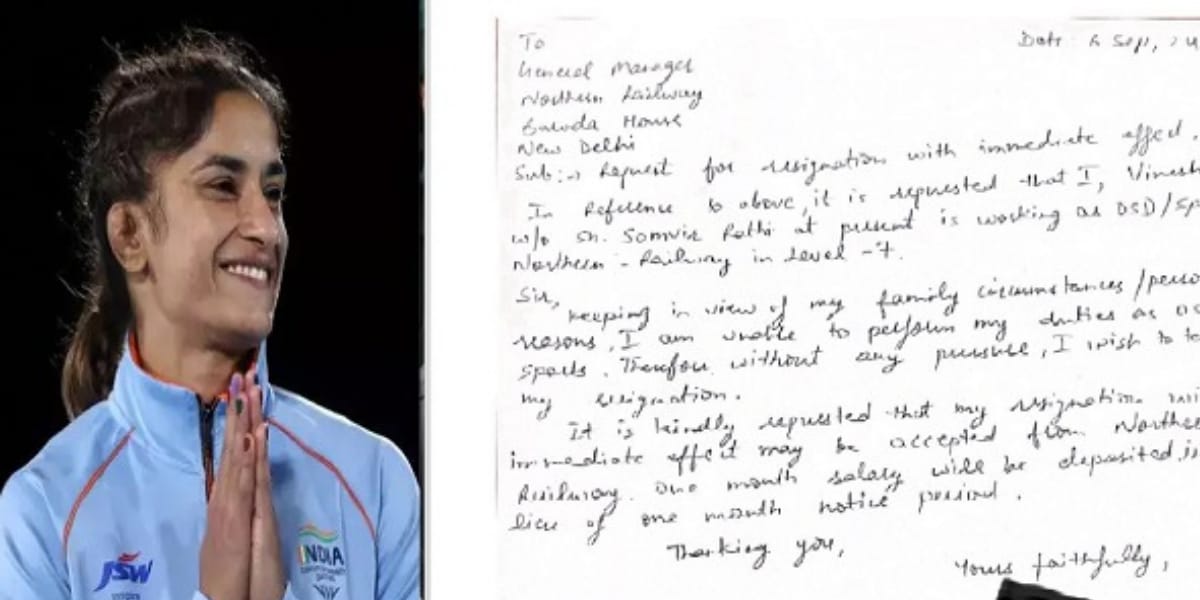 To
Date 6 Sep,
General Manager
Northern Railway
Baroda House
New Delhi
Sub:-> Request for resignation with immediate effect.
In Reference to above, it is requested that I, Vinesh
w/o Sh. Somvir Rathi at present is working as OSD/Sp
Northern - Railway in level -7.
Sir,
Keeping in view of my family circumstances/perso
reasons, I am unable to perform my duties as OS
sports. Therefore without any pressure, I wish to te
my resignation.
It is kindly requested that my resignation wi
immediate effect may be accepted from Norther
Railway. One month salary will be deposited in
lieu of one month notice period.
Thanking you,
Yours faithfully,
JSW
INDIA